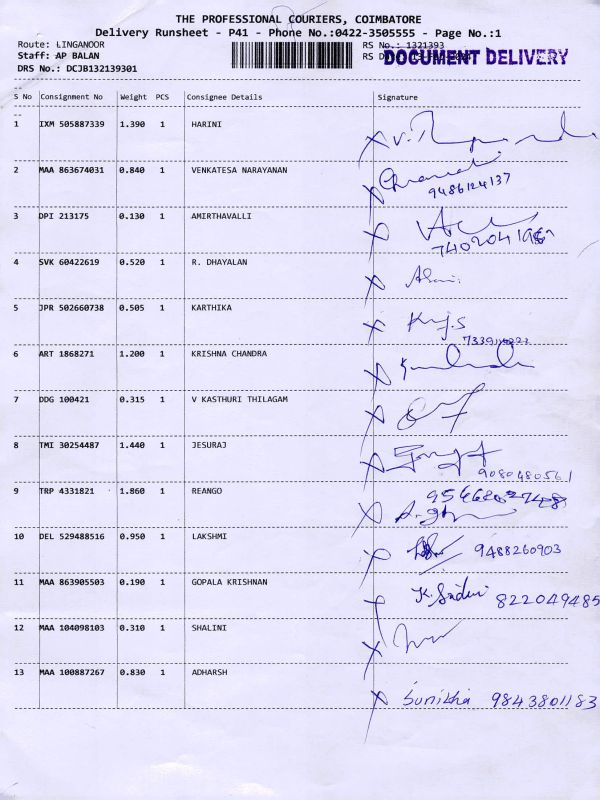 THE PROFESSIONAL COURIERS, COIMBATORE
Delivery Runsheet - P41 - Phone No.:0422-3505555 - Page No.:1
Route: LINGANOOR RS No.: 1321393
Staff: AP BALAN RS D DOCUMENT DELIVERY
DRS No.: DCJB132139301
S No Consignment No Weight PCS Consignee Details Signature
1 IXM 505887339 1.390 1 HARINI
2 MAA 863674031 0.840 1 VENKATESA NARAYANAN
9486124137
3 DPI 213175 0.130 1 AMIRTHAVALLI
4 SVK 60422619 0.520 1 R. DHAYALAN
5 JPR 502660738 0.505 1 KARTHIKA
6 ART 1868271 1.200 1 KRISHNA CHANDRA
7 DDG 100421 0.315 1 V KASTHURI THILAGAM
8 TMI 30254487 1.440 1 JESURAJ
9080480561
9 TRP 4331821 1.860 1 REANGO
10 DEL 529488516 0.950 1 LAKSHMI
9488260903
11 MAA 863905503 0.190 1 GOPALA KRISHNAN
822049485
12 MAA 104098103 0.310 1 SHALINI
13 MAA 100887267 0.830 1 ADHARSH
Sunitha 9843801183